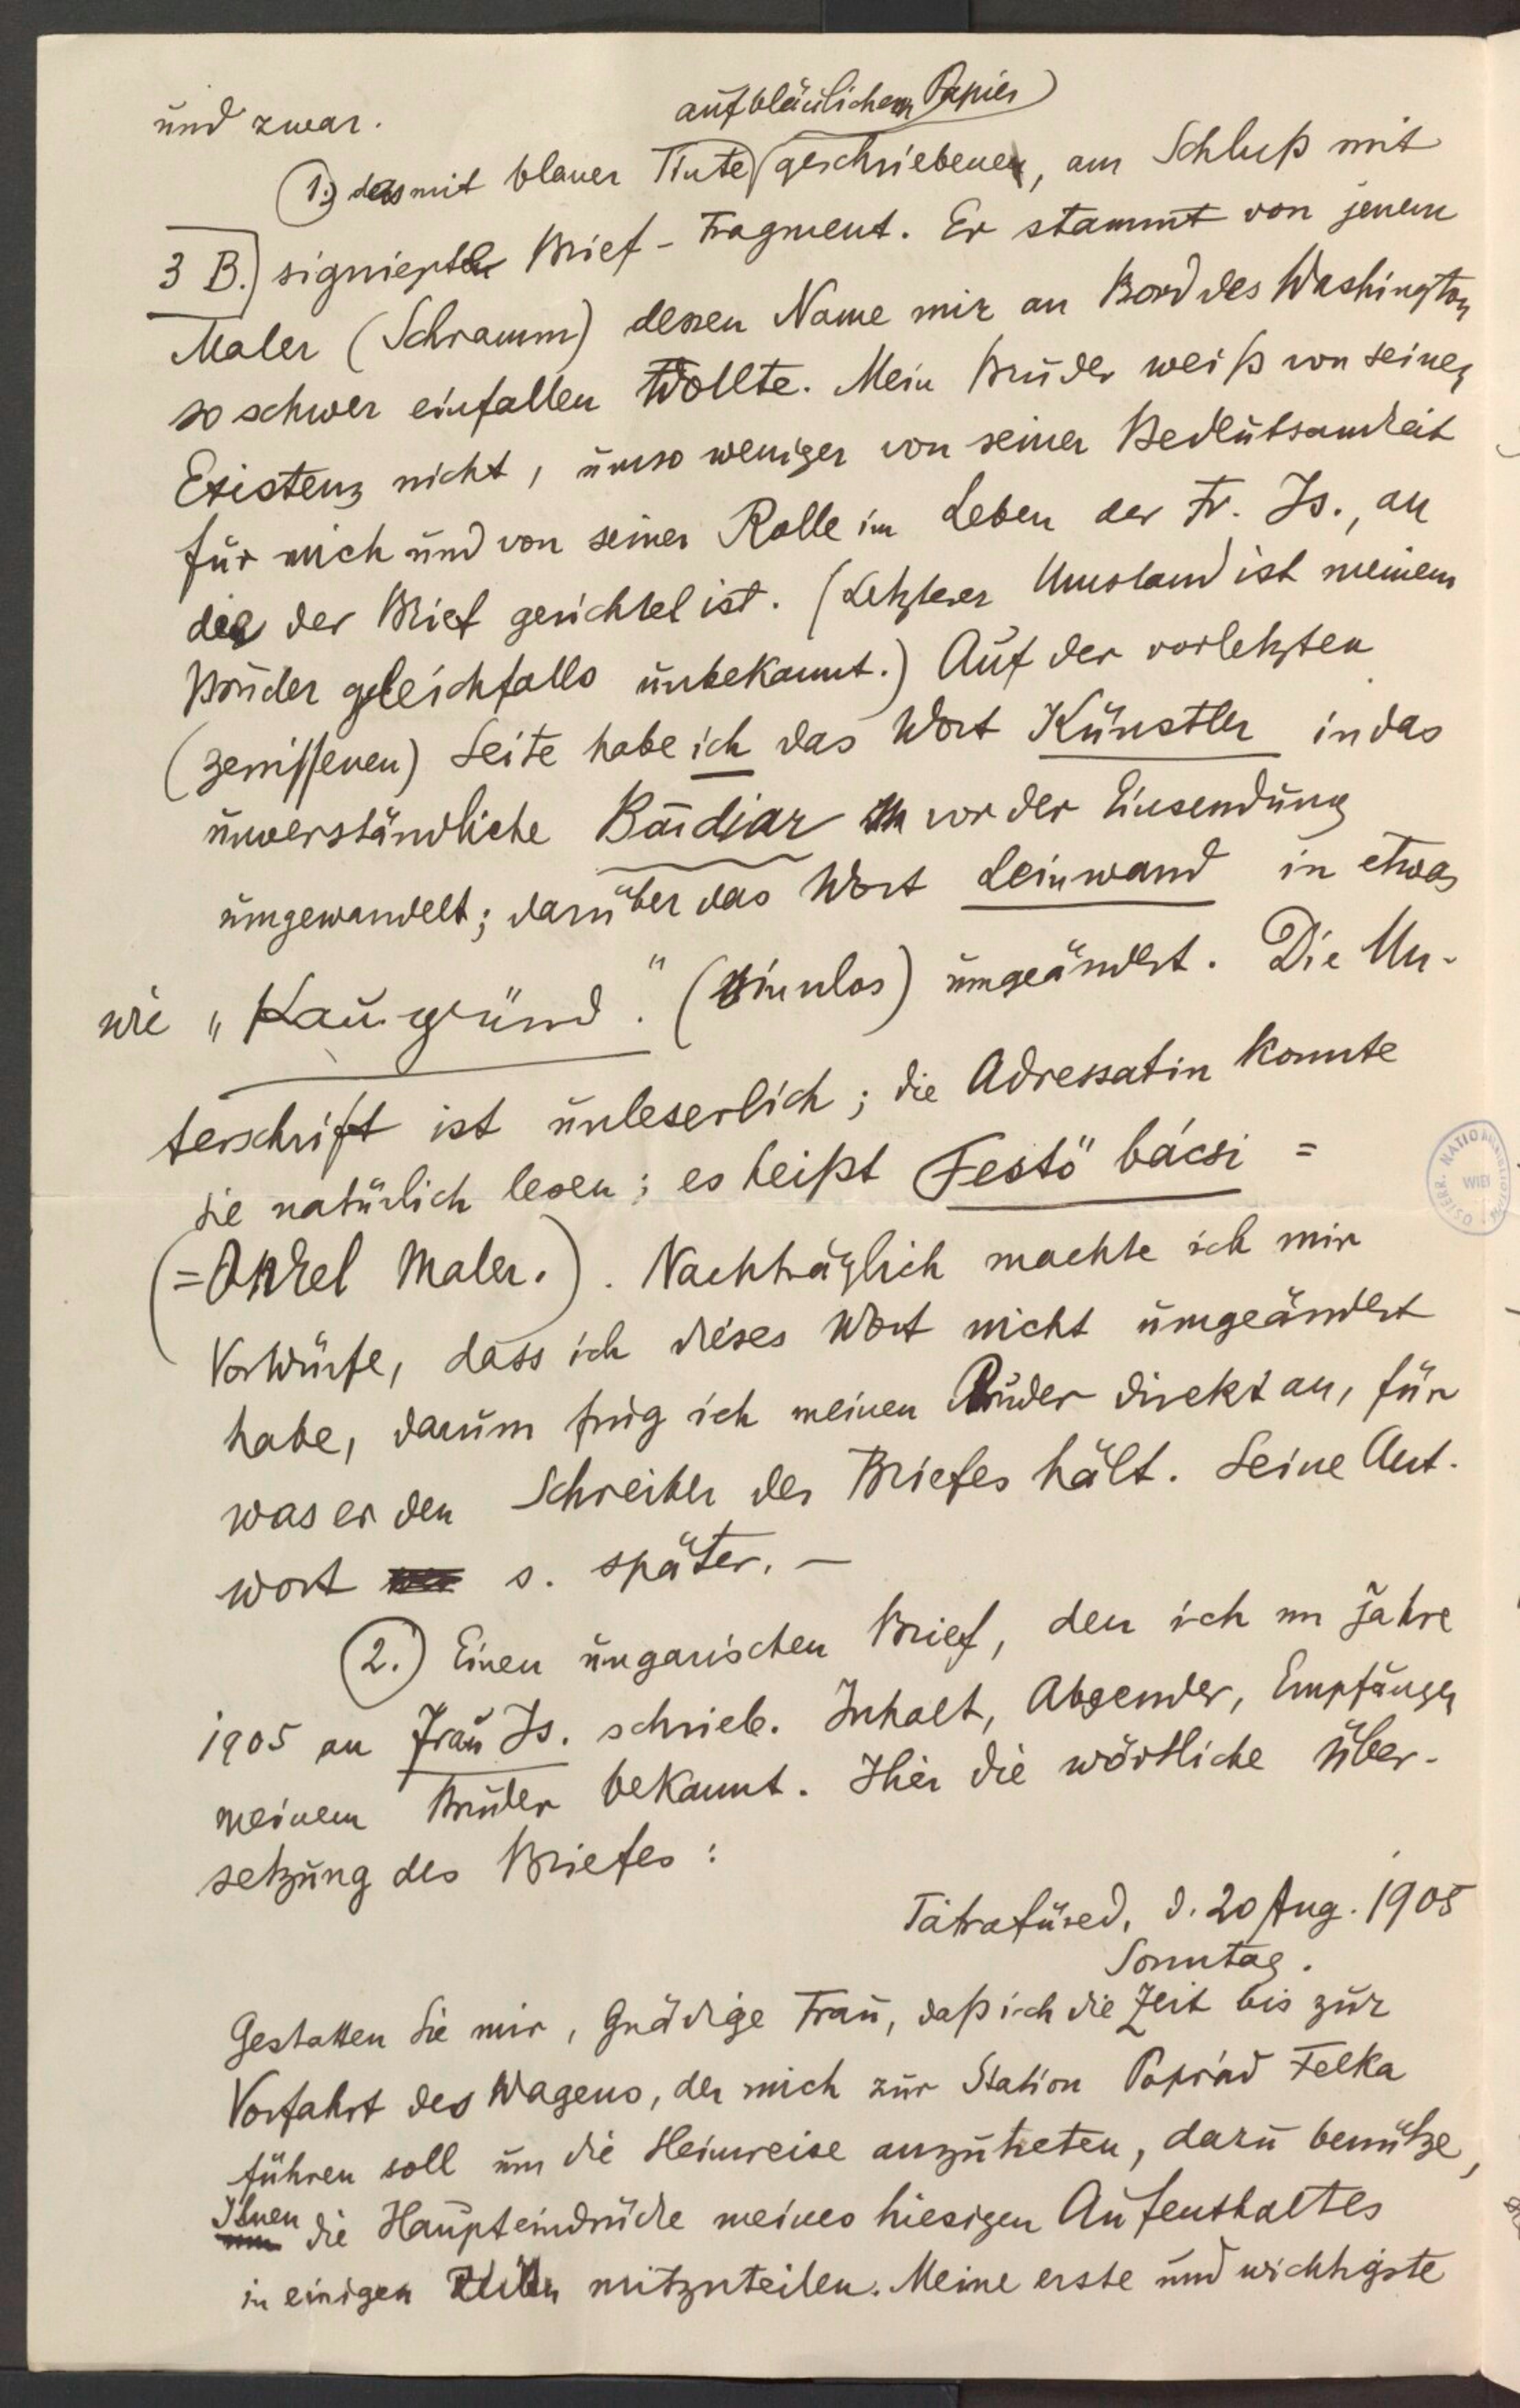 und zwar.
auf bläulichem Papier
1.) das mit blauer Tinte geschriebene, am Schluß mit
3 B.) signierte Brief-Fragment. Er stammt von jenem
Maler (Schramm) dessen Name mir an Bord des Washington
so schwer einfallen wollte. Mein Bruder weiß von seiner
Existenz nicht, umso weniger von seiner Bedeutsamkeit
für mich und von seiner Rolle im Leben der Fr. Is., an
die der Brief gerichtet ist. (Letzterer Umstand ist meinem
Bruder gleichfalls unbekannt.) Auf der vorletzten
(zerrissenen) Seite habe ich das Wort Künstler in das
unverständliche Bardiar vor der Einsendung
umgewandelt; darüber das Wort Leinwand in etwas
wie „Kaugrund." (sinnlos) umgeändert. Die Un-
terschrift ist unleserlich; die Adressatin konnte
sie natürlich lesen; es heißt Festö bácsi =
(=Onkel Maler.). Nachträglich machte ich mir
Vorwürfe, dass ich dieses Wort nicht umgeändert
habe, darum frug ich meinen Bruder direkt an, für
was er den Schreiber des Briefes hält. Seine Ant-
wort s. später. —
2.) Einen ungarischen Brief, den ich im Jahre
1905 an Frau Is. schrieb. Inhalt, Absender, Empfänger
meinem Bruder bekannt. Hier die wörtliche Über-
setzung des Briefes:
Tátrafüred, d. 20 Aug. 1905
Sonntag.
Gestatten Sie mir, Gnädige Frau, daß ich die Zeit bis zur
Vorfahrt des Wagens, der mich zur Station Poprád Felka
führen soll um die Heimreise anzutreten, dazu benütze,
Ihnen die Haupteindrücke meines hiesigen Aufenthaltes
in einigen Zeilen mitzuteilen. Meine erste und wichtigste
ÖSTERR. NATIONALBIBLIOTHEK
WIEN